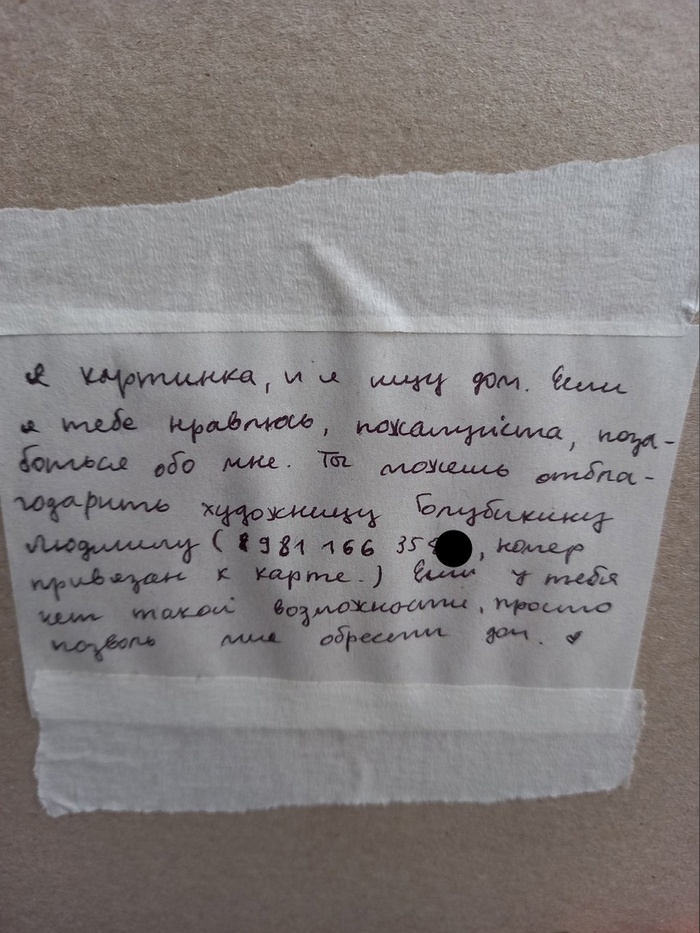 я картинка, и я ищу дом. Если
я тебе нравлюсь, пожалуйста, поза-
боться обо мне. Ты можешь отбла-
годарить художницу Голубикину
Людмилу (8 981 166 35 , номер
привязан к карте.) Если у тебя
нет такой возможности, просто
позволь мне обрести дом. ♥